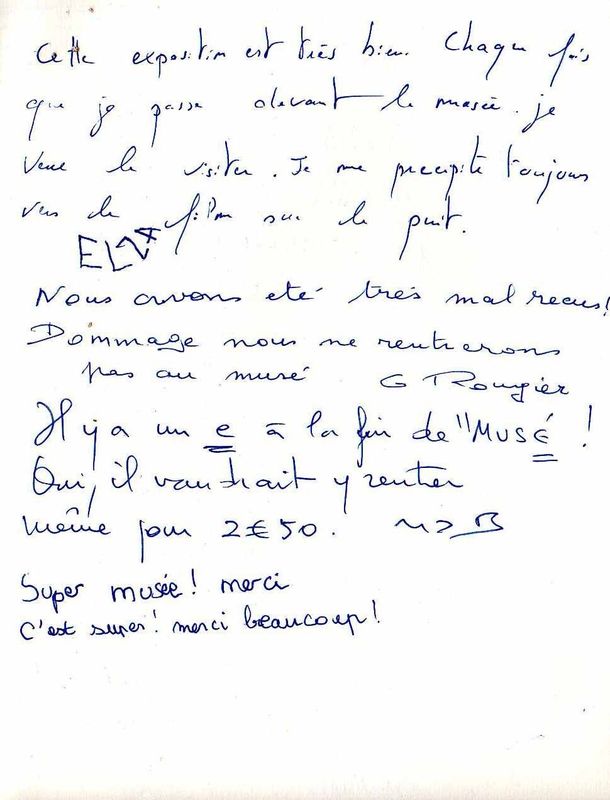 Cette exposition est très bien. Chaque fois
que je passe devant le musée. je
viens le visiter. Je me precipite toujours
vers le film sur le puit.
ELZA
Nous avons eté très mal recus!
Dommage nous ne rentrerons
pas au musé G Rougier
Il y a un e à la fin de "MUSÉ !
Oui, il vaudrait y rentrer
même pour 2€50.
Super musée! merci
C'est super! merci beaucoup!